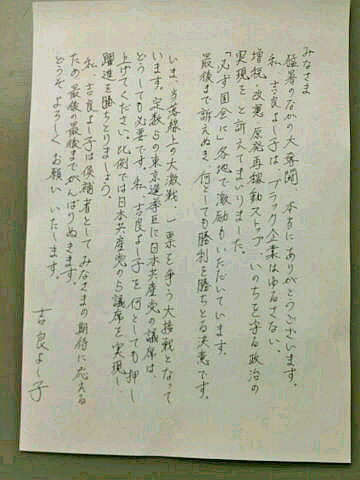 みなさま
猛暑のなかの大奮闘、本当にありがとうございます。
私、吉良よし子は、ブラック企業はゆるさない、
増税・改悪、原発再稼動ストップ、いのちを守る政治の
実現を、と訴えてまいりました。
「必ず国会に」各地で激励もいただいています。
最後まで訴えぬき、何としても勝利を勝ちとる決意です。
いま、当落線上の大激戦、一票を争う大接戦となって
います。定数5の東京選挙区に日本共産党の議席は、
どうしても必要です。私、吉良よし子を何としても押し
上げてください。比例では日本共産党の5議席を実現し、
躍進を勝ちとりましょう。
私、吉良よし子は候補者としてみなさまの期待に応える
ため最後の最後までがんばりぬきます。
どうぞよろしくお願いいたします。
吉良よし子